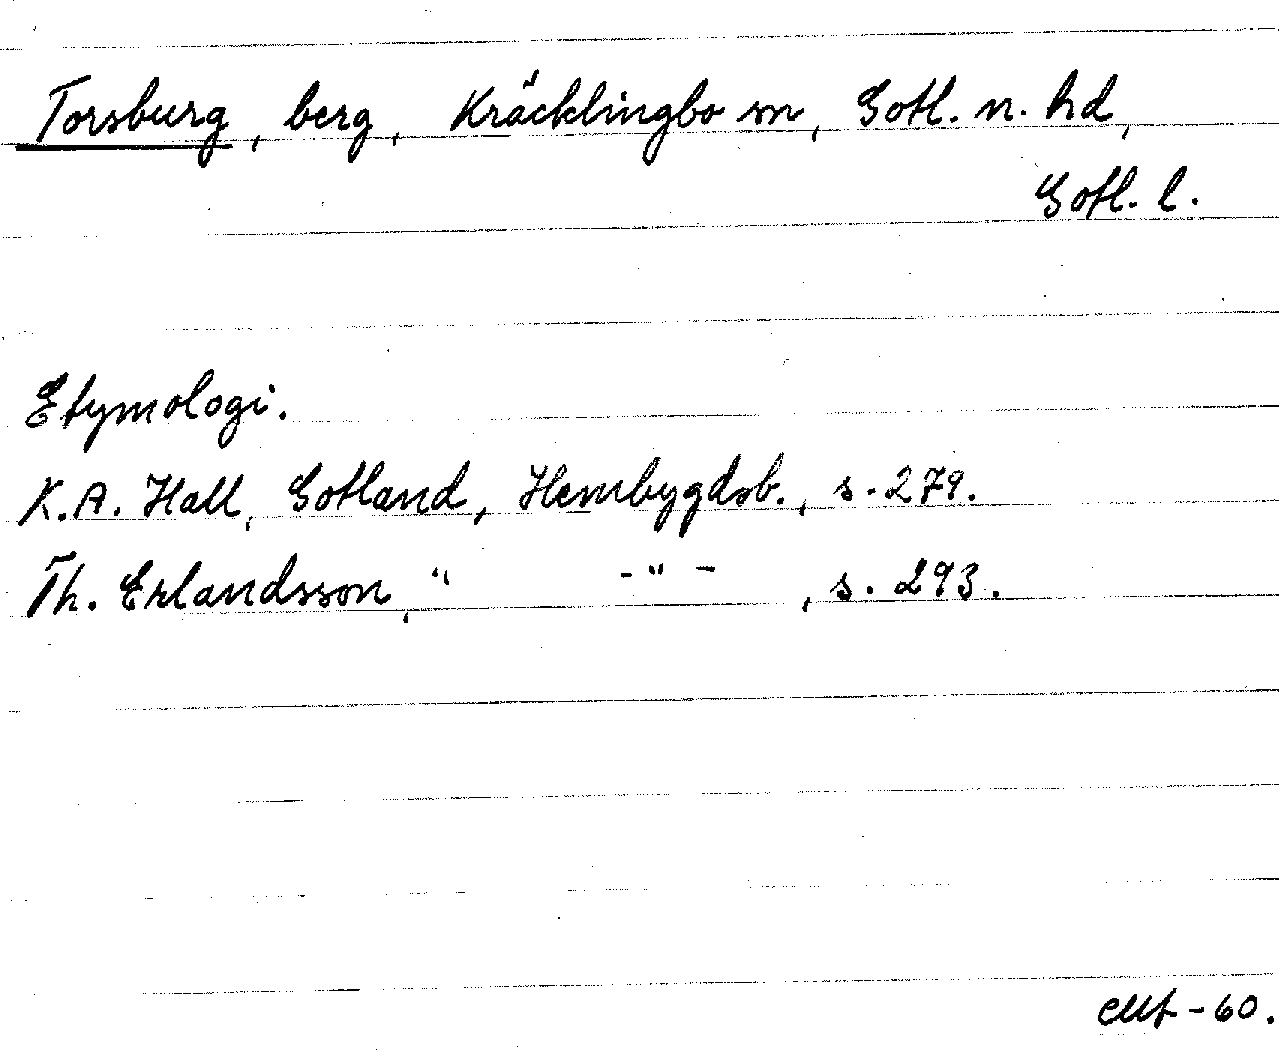 Torsburg, berg, Kräcklingbo sn, Gotl. n. hd,
Gotl. l.
Etymologi.
K.A. Hall, Gotland, Hembygdsb., s. 279.
Th. Erlandsson, " -"- , s. 293.
-60.